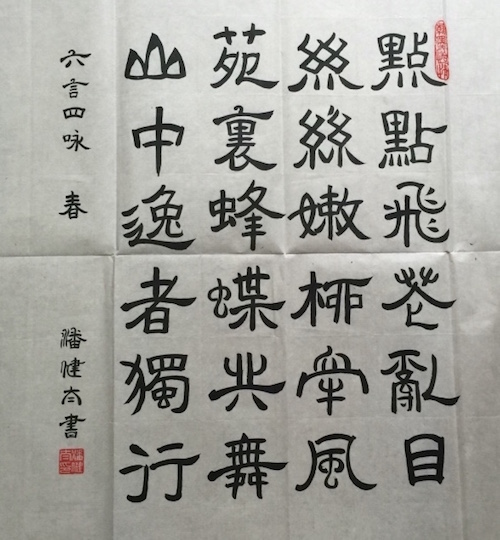 點點飛花亂目
絲絲嫩柳牽風
苑裏蜂蝶共舞
山中逸者獨行
六言四咏 春
潘健書